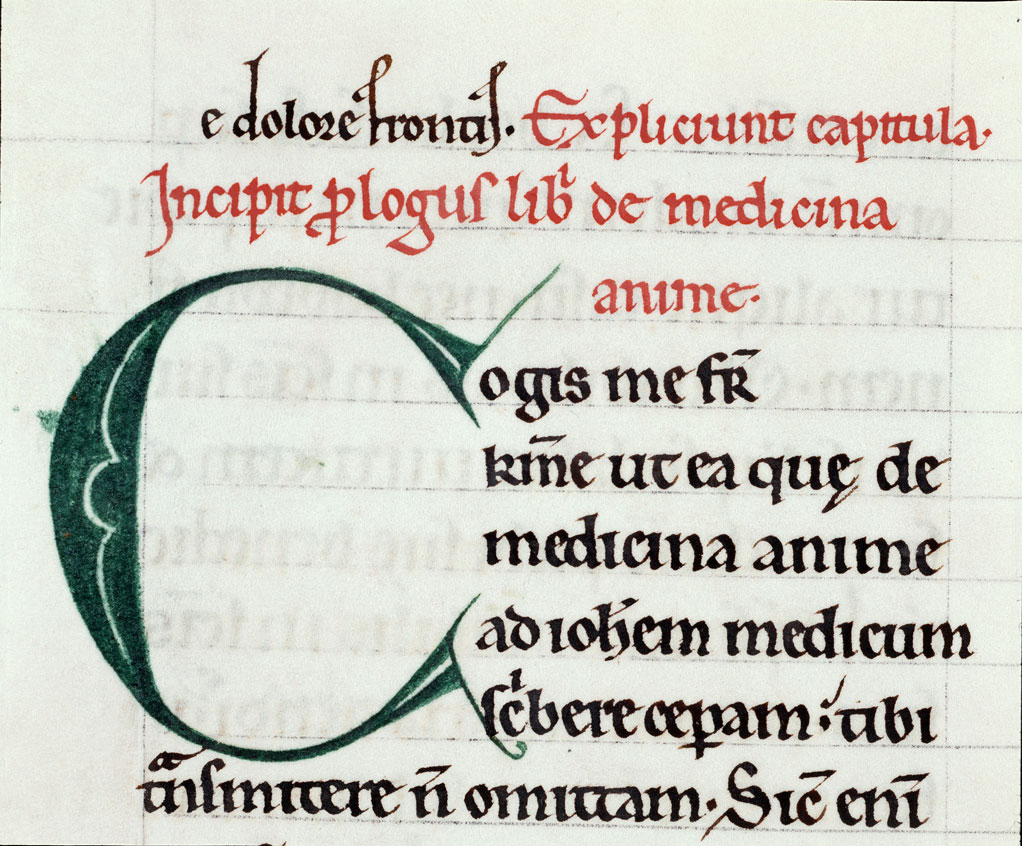 e dolore frontis. Expliciunt capitula.
Incipit ꝓlogus lib̃ de medicina
anime.
Cogis me fr̃
km̃e ut ea quę de
medicina anime
ad ioħem medicum
scͥbere cepam; tibi
tᷓnsmittere ñ omittam. Sic̃ enĩ